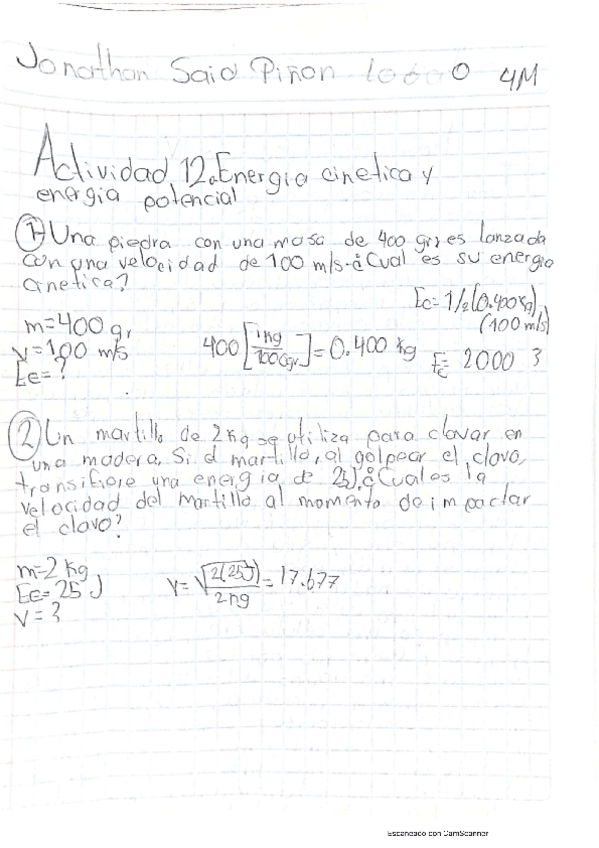 Jonathan Said Piñon 4M
Actividad 12. Energia cinetica y
energia potencial
1) Una piedra con una masa de 400 gr, es lanzada
con una velocidad de 100 m/s. ¿Cual es su energia
cinetica?
m=400 gr
v=100 m/s
Ec=?
400 [1kg/1000gr] = 0.400 kg
Ec=1/2(0.400kg)
(100 m/s)
Ec= 2000 J
2) Un martillo de 2kg se utiliza para clavar en
una madera. Si el martillo, al golpear el clavo,
transifiere una energia de 25J. ¿Cual es la
velocidad del martillo al momento de impactar
el clavo?
m=2 kg
Ec= 25 J
v= ?
v= √2(25J)/2kg = 17.677
Escaneado con CamScanner